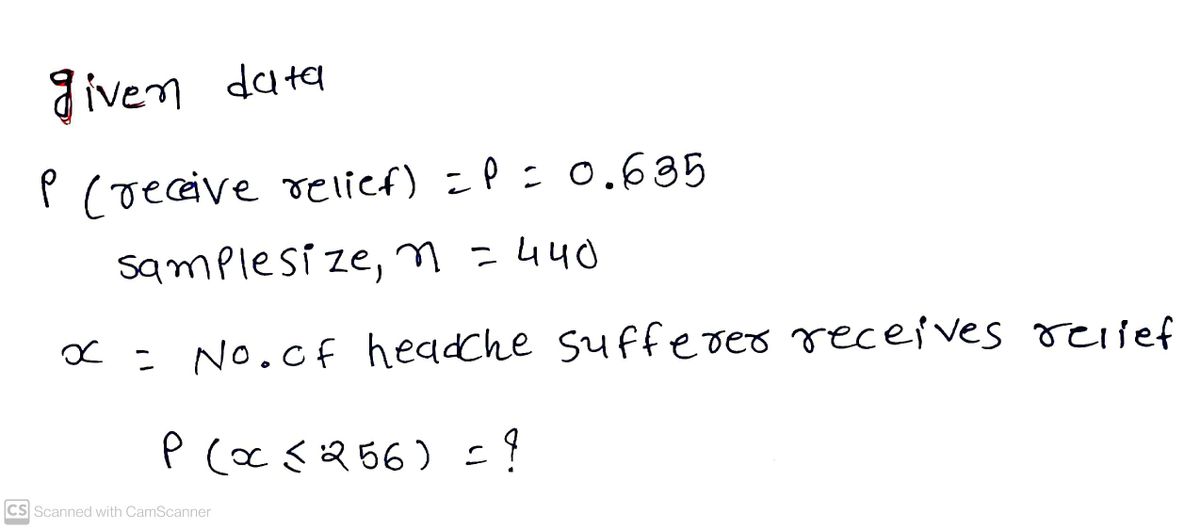 given data
P (receive relief) = P = 0.635
samplesize, n = 440
x = No. of headche sufferer receives relief
P (x ≤ 256) = ?
CS Scanned with CamScanner